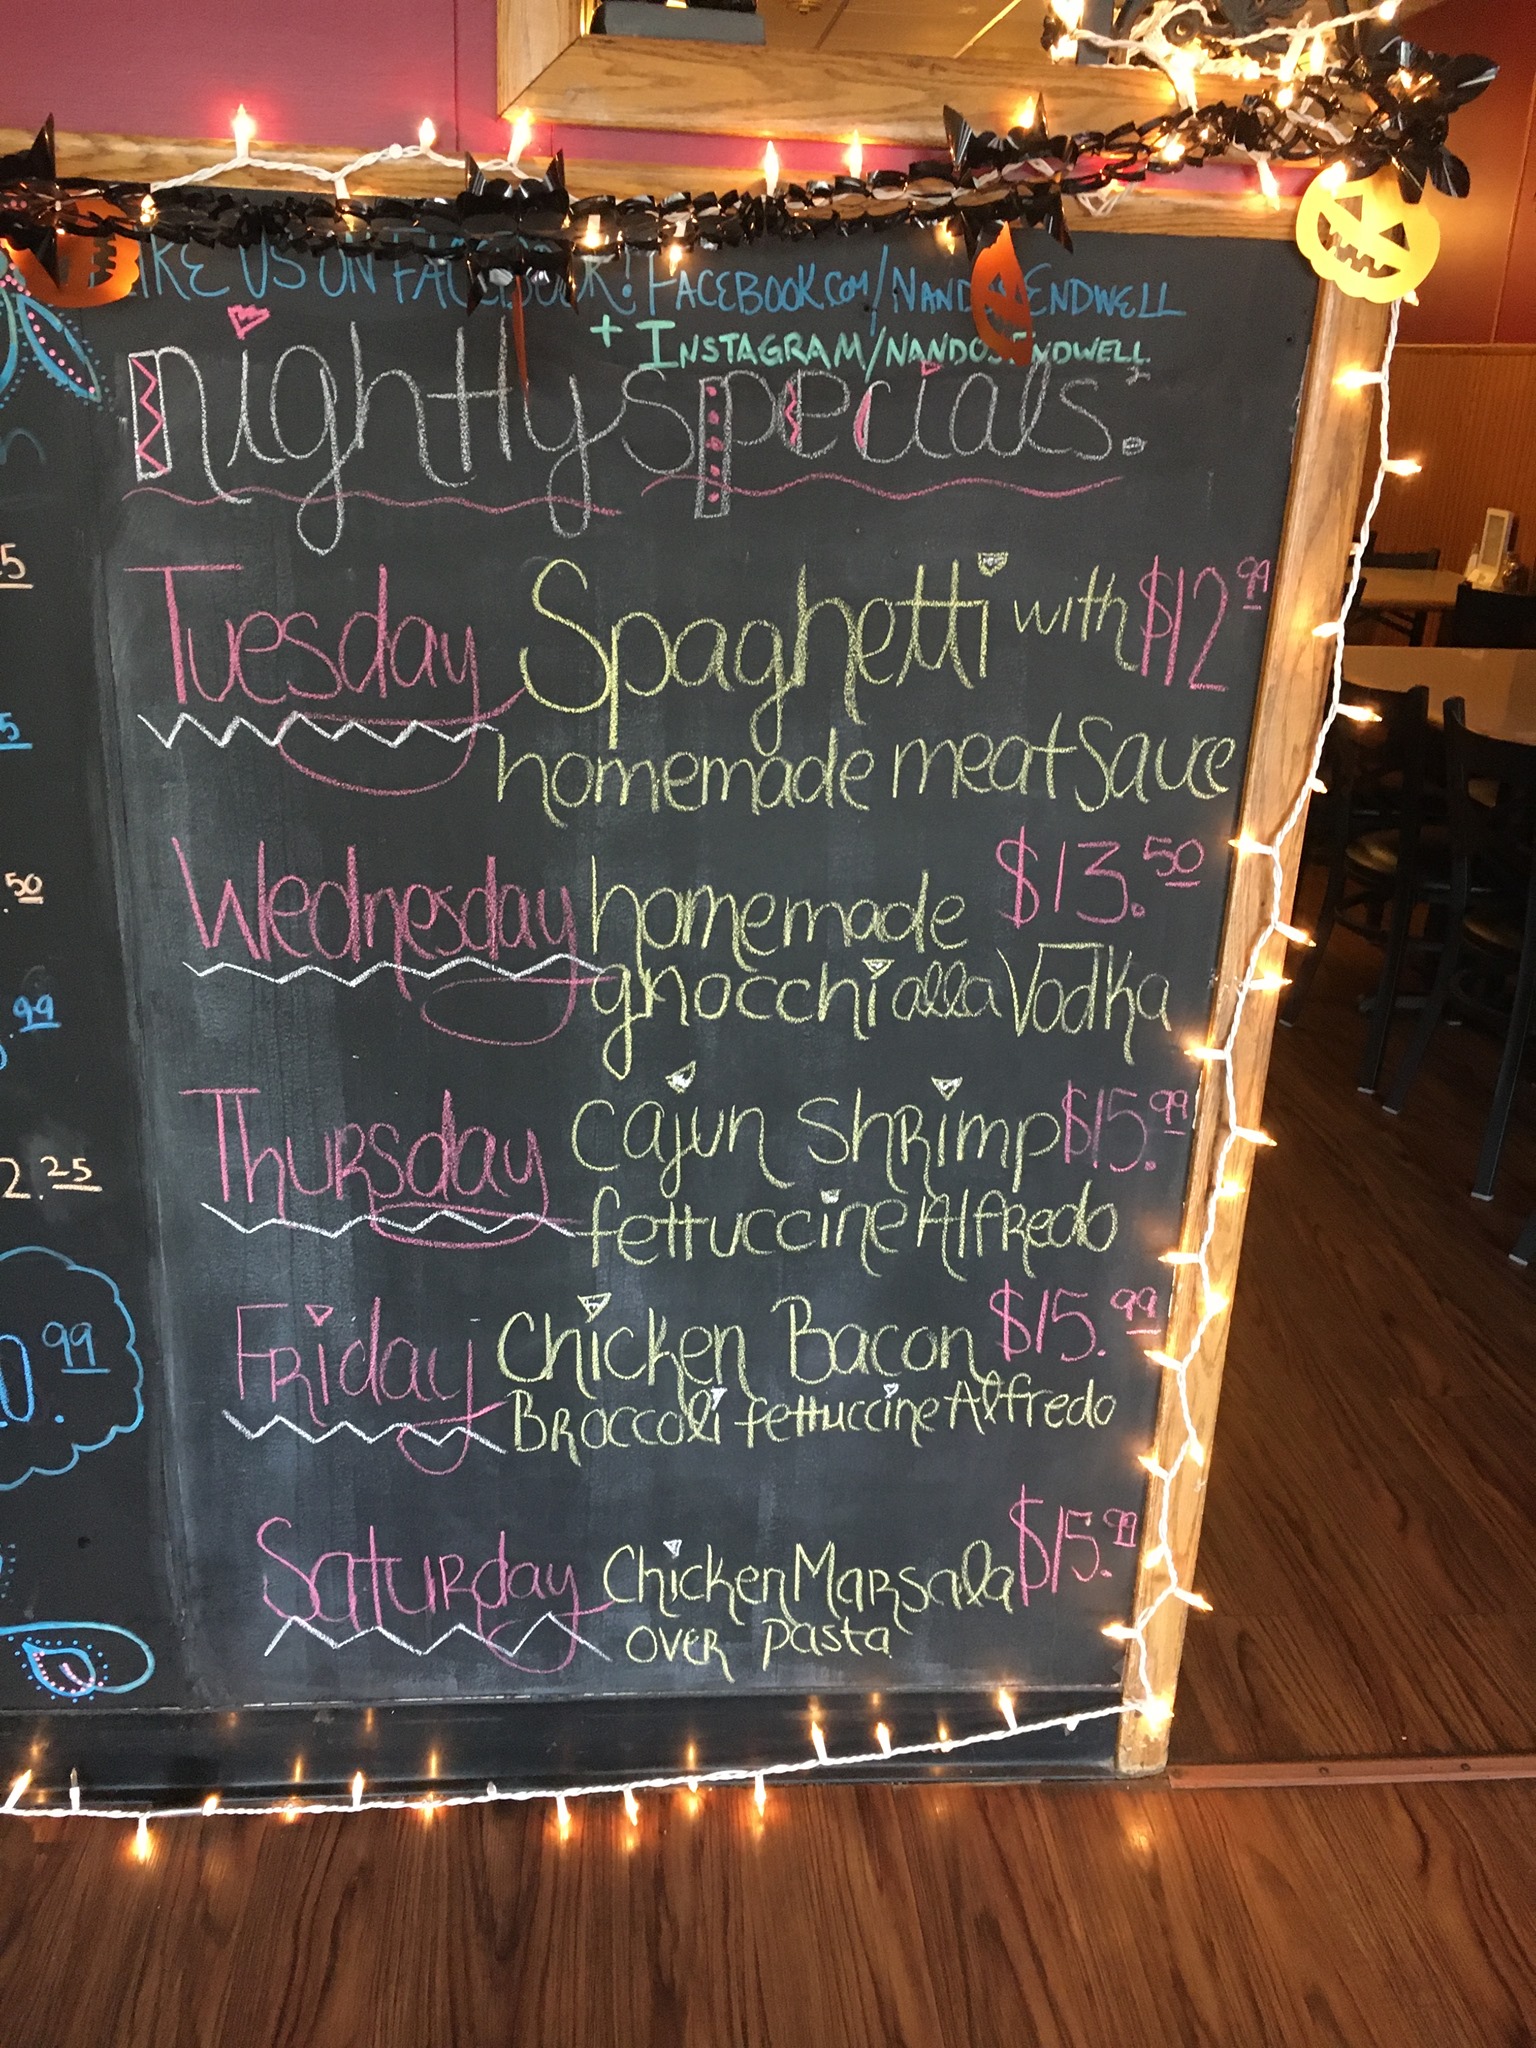 US ON FACEBOOK! FACEBOOK.COM/NANDOSENDWELL
+ INSTAGRAM/NANDOSENDWELL
nightly specials:
Tuesday Spaghetti with $12.99
homemade meat sauce
Wednesday homemade $13.50
gnocchi alla Vodka
Thursday cajun shrimp $15.99
fettuccine Alfredo
Friday Chicken Bacon $15.99
Broccoli fettuccine Alfredo
Saturday Chicken Marsala $15.99
over pasta
5
5
.50
.99
2.25
0.99